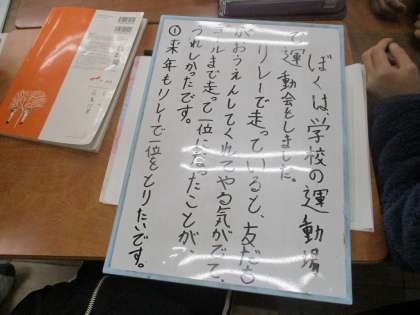 ぼくは、学校の運動場
で運動会をしました。
リレーで走っていると、友だち
がおうえんしてくれてやる気がでて、
ゴールまで走って一位になったことが、
うれしかったです。
①来年もリレーで一位をとりたいです。